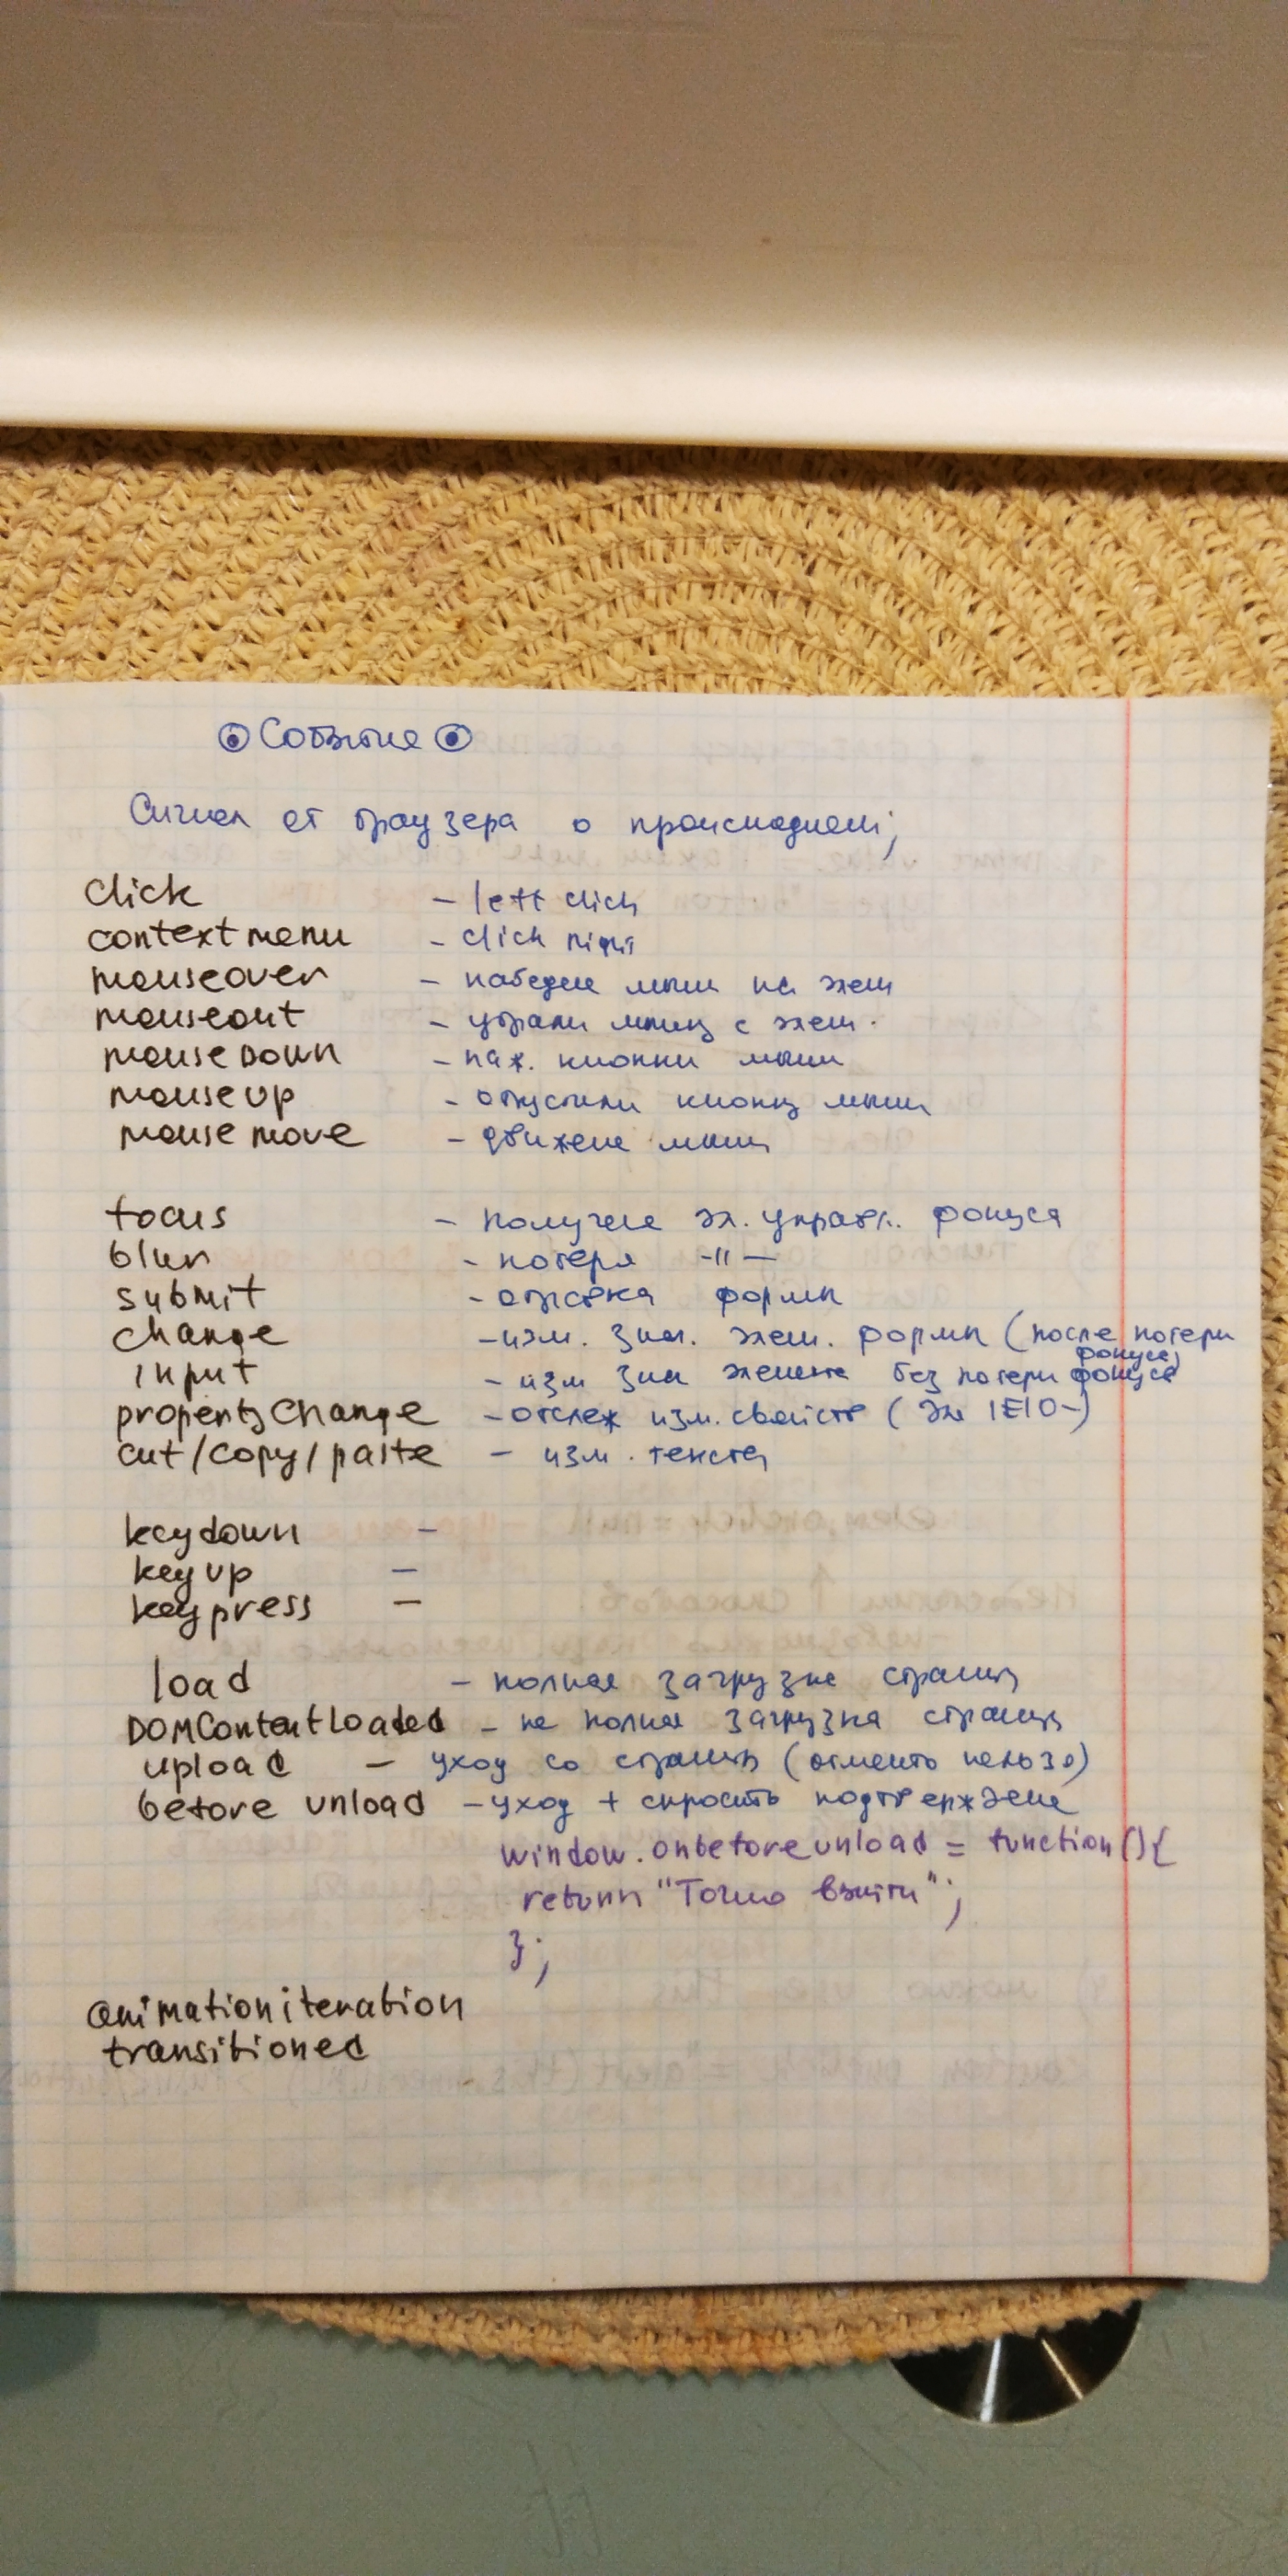 Событие
Сигнал от браузера о происходящем;
click - left click
contextmenu - click right
mouseover - наведение мыши на элем
mouseout - убрали мышь с элем.
mouseDown - наж. кнопки мыши
mouseup - отпустили кнопку мыши
mouse move - движение мыши
focus - получение эл. управл. фокуса
blur - потеря -"-
submit - отправка формы
change - изм. знач. элем. формы (после потери
фокуса)
input - изм знач элемента без потери фокуса
propertyChange - отслеж изм. свойств ( IE10-)
cut/copy/paste - изм. текста
keydown -
keyup -
keypress -
load - полная загрузка страницы
DOMContentLoaded - не полная загрузка страницы
upload - уход со страницы (отменить нельзя)
before unload - уход + спросить подтверждение
window.onbeforeunload = function(){
return "Точно выйти";
};
animationiteration
transitioned